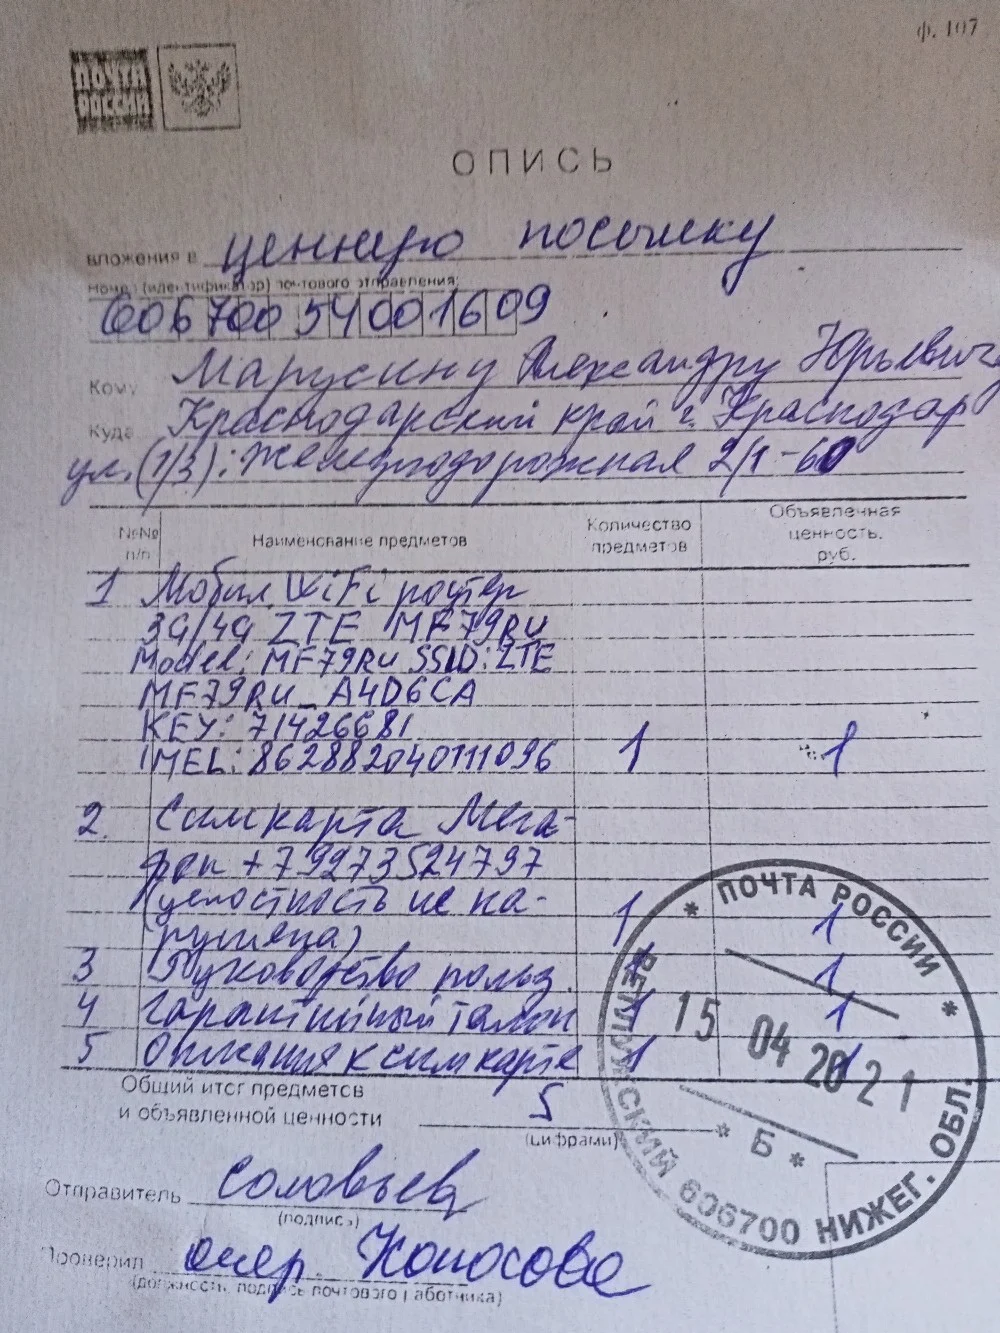 ф. 107
ПОЧТА
РОССИИ
ОПИСЬ
вложения в ценную посылку
номер (идентификатор) почтового отправления:
60670054001609
Кому Марусину Александру Юрьевичу
Куда Краснодарский край г. Краснодар
ул. (П/З): Железнодорожная 2/1-60
№№ п/п Наименование предметов Количество предметов Объявленная ценность, руб.
1 Мобил. WiFi роутер
3G/4G ZTE MF79RU
Model: MF79RU SSID: ZTE
MF79RU_A4D6CA
KEY: 71426681
IMEL: 862882040111096 1 1
2. Симкарта Мега-
фон +79273524797
(целостность не на- 1 1
рушена)
3 Руководство польз. 1 1
4 Гарантийный талон 1 1
5 Описания к сим карте 1 1
Общий итог предметов
и объявленной ценности 5
(цифрами)
Отправитель Соловьев
(подпись)
Проверил опер. Коносова
(должность, подпись почтового работника)
* ПОЧТА РОССИИ *
15 04 2021
* Б *
ВЕТЛУЖСКИЙ 606700 НИЖЕГ. ОБЛ.